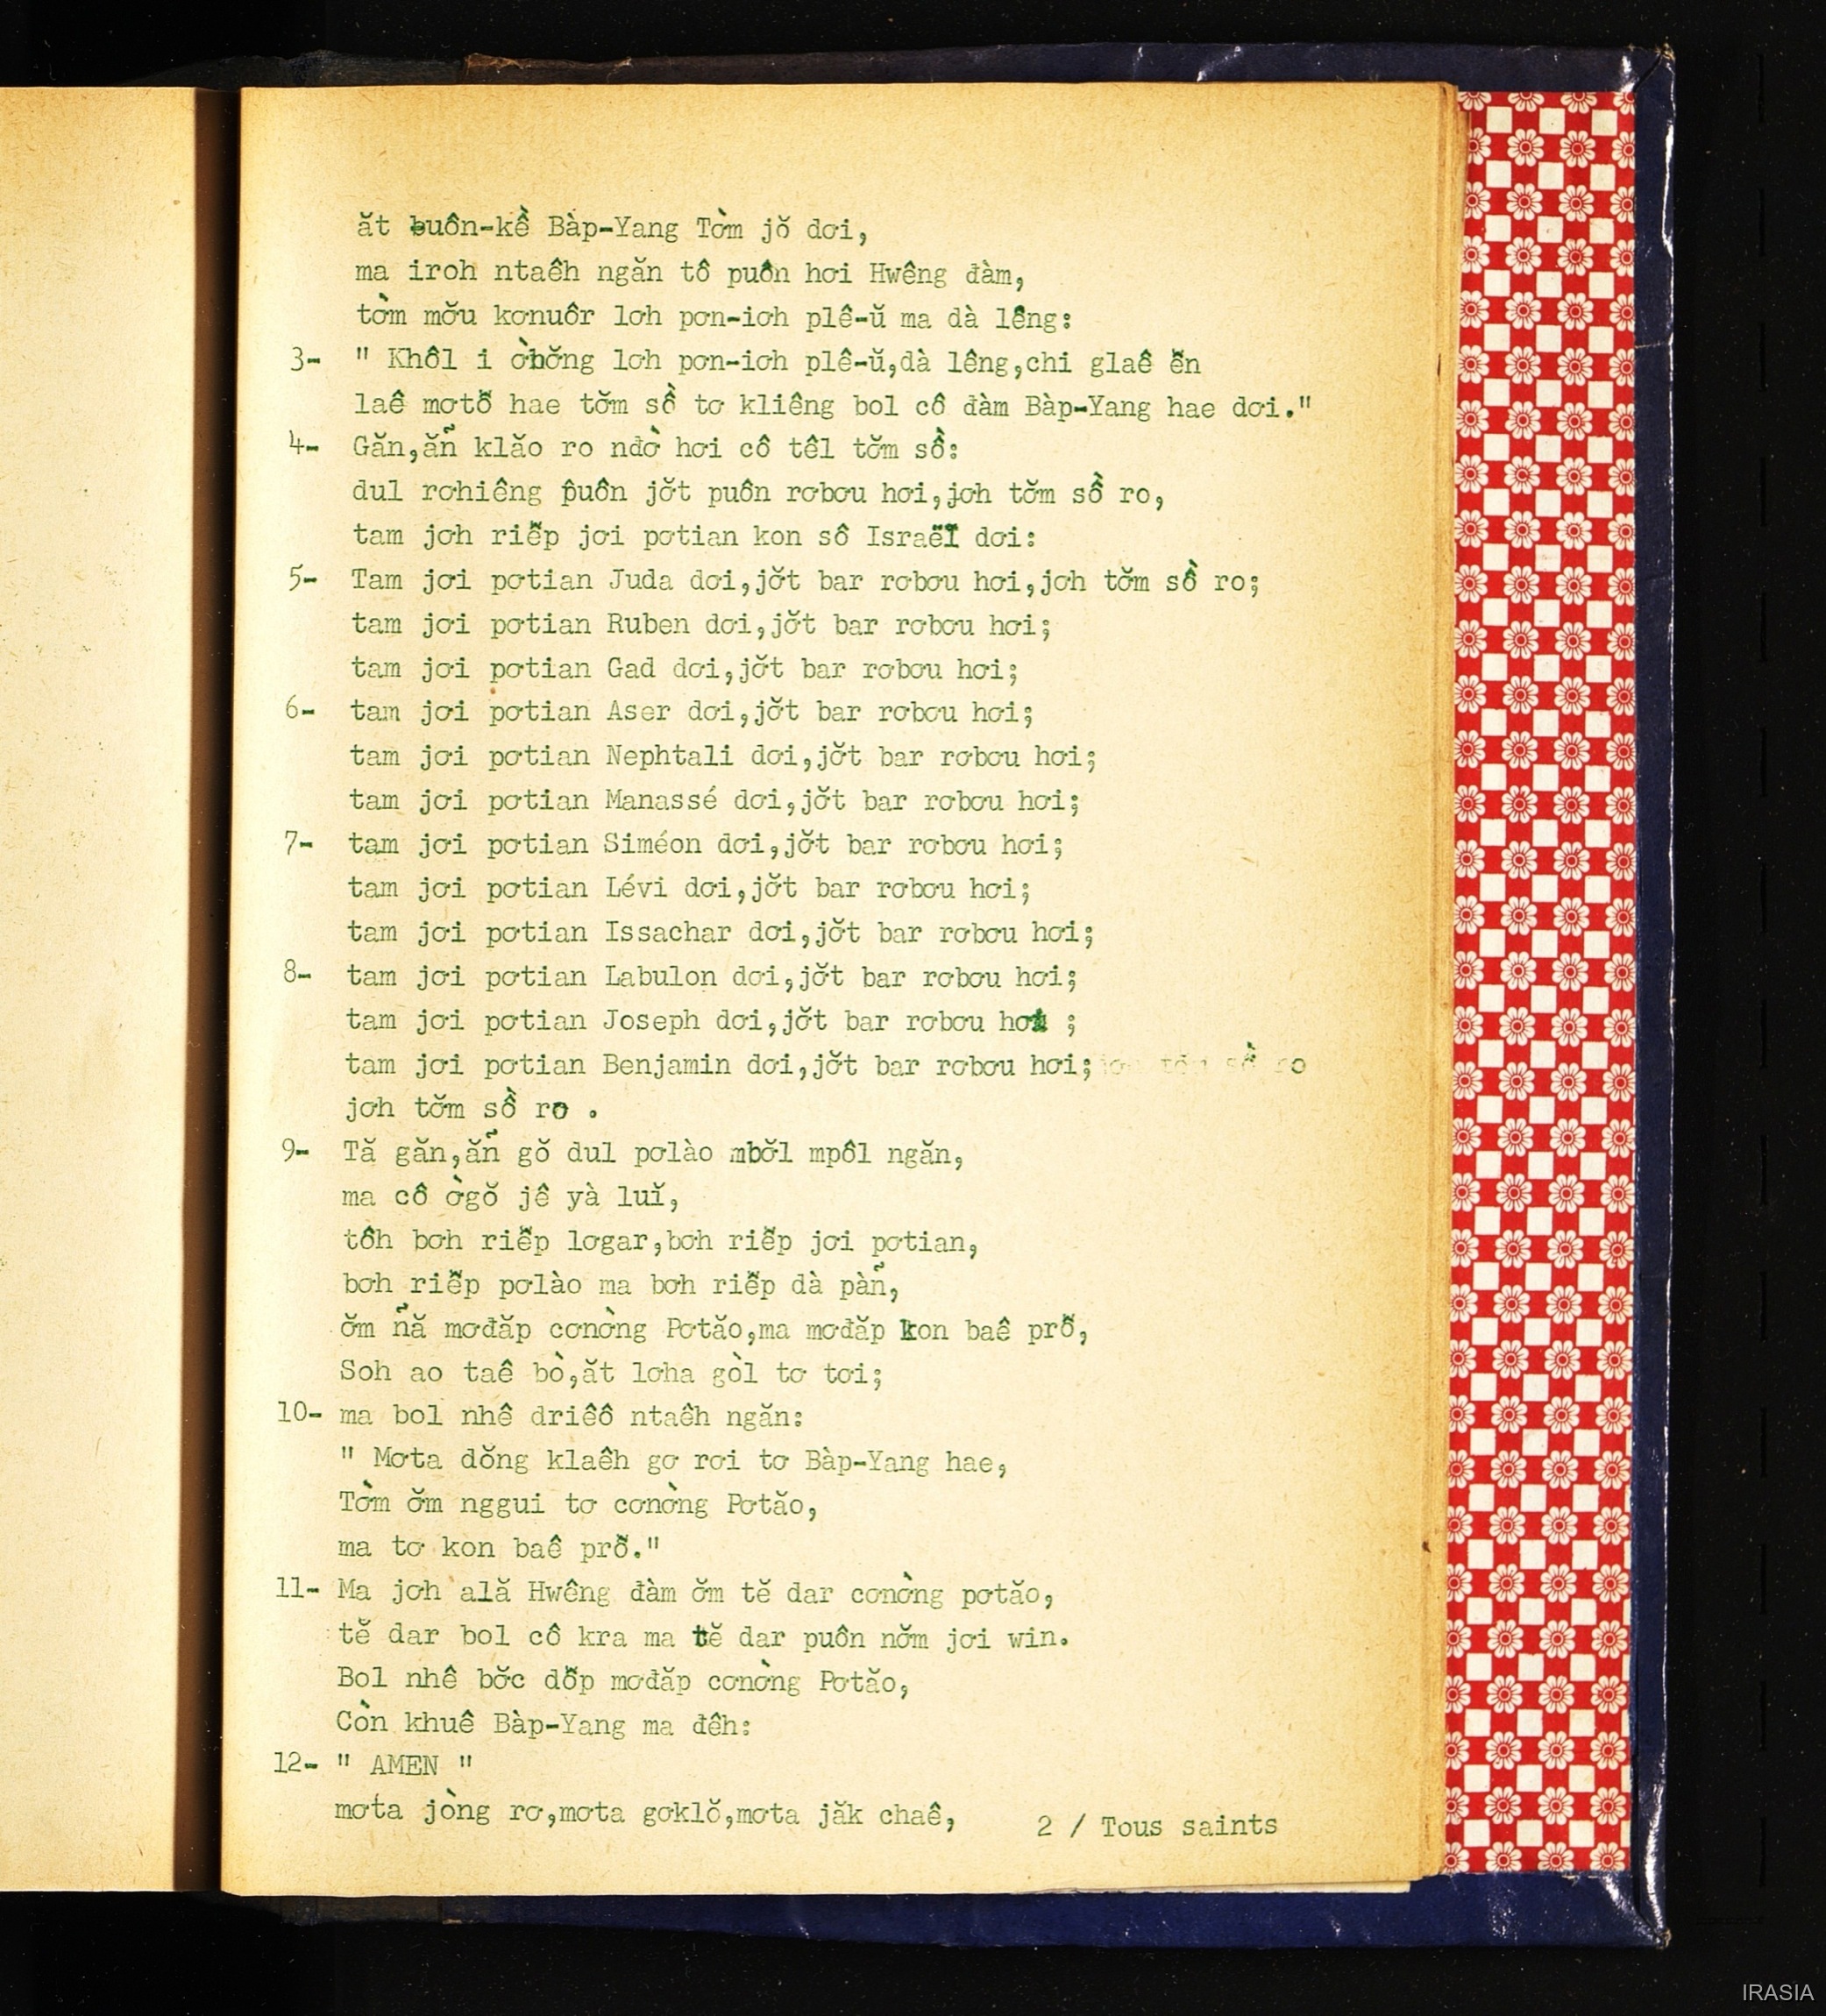 ăt buôn-kề Bàp-Yang Tờm jŏ dơi,
ma iroh ntaêh ngăn tô puôn hơi Hwêng đàm,
tờm mơ̆u kơnuôr lơh pơn-iơh plê-ŭ ma dà lêng:
3- " Khôl i ờbơ̆ng lơh pơn-iơh plê-ŭ,dà lêng,chi glaê ê̆n
laê mơtô̆ hae tơ̆m sồ tơ kliêng bol cô đàm Bàp-Yang hae dơi."
4- Găn,ăñ klăo ro nđờ hơi cô têl tơ̆m sồ:
dul rơhiêng puôn jơ̆t puôn rơbơu hơi,jơh tơ̆m sồ ro,
tam jơh riê̆p jơi pơtian kon sô Israël dơi:
5- Tam jơi pơtian Juda dơi,jơ̆t bar rơbơu hơi,jơh tơ̆m sồ ro;
tam jơi pơtian Ruben dơi,jơ̆t bar rơbơu hơi;
tam jơi pơtian Gad dơi,jơ̆t bar rơbơu hơi;
6- tam jơi pơtian Aser dơi,jơ̆t bar rơbơu hơi;
tam jơi pơtian Nephtali dơi,jơ̆t bar rơbơu hơi;
tam jơi pơtian Manassé dơi,jơ̆t bar rơbơu hơi;
7- tam jơi pơtian Siméon dơi,jơ̆t bar rơbơu hơi;
tam jơi pơtian Lévi dơi,jơ̆t bar rơbơu hơi;
tam jơi pơtian Issachar dơi,jơ̆t bar rơbơu hơi;
8- tam jơi pơtian Labulon dơi,jơ̆t bar rơbơu hơi;
tam jơi pơtian Joseph dơi,jơ̆t bar rơbơu hơi ;
tam jơi pơtian Benjamin dơi,jơ̆t bar rơbơu hơi;
jơh tơ̆m sồ ro .
9- Tă găn,ăñ gŏ dul pơlào mbơ̆l mpôl ngăn,
ma cô ờgŏ jê yà luĭ,
tôh bơh riê̆p lơgar,bơh riê̆p jơi pơtian,
bơh riê̆p pơlào ma bơh riê̆p dà pàñ,
ơ̆m ñă mơđăp cơnờng Pơtăo,ma mơđăp kon baê prô̆,
Soh ao taê bò,ăt lơha gòl tơ tơi;
10- ma bol nhê driêô ntaêh ngăn:
" Mơta dŏng klaêh gơ rơi tơ Bàp-Yang hae,
Tờm ơ̆m nggui tơ cơnờng Pơtăo,
ma tơ kon baê prô̆."
11- Ma jơh ală Hwêng đàm ơ̆m tĕ dar cơnờng pơtăo,
tĕ dar bol cô kra ma tĕ dar puôn nơ̆m jơi win.
Bol nhê bơ̆c dô̆p mơđăp cơnờng Pơtăo,
Còn khuê Bàp-Yang ma đêh:
12- " AMEN "
mơta jòng rơ,mơta gơklŏ,mơta jăk chaê,
2 / Tous saints
IRASIA